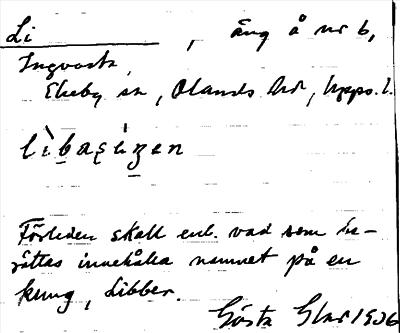 Li , äng å nr 6,
Ingvasta,
Ekeby sn, Olands hd, Upps. l.
Förleden skall enl. vad som be-
rättas innehålla namnet på en
kung, Libber.
Gösta 1936